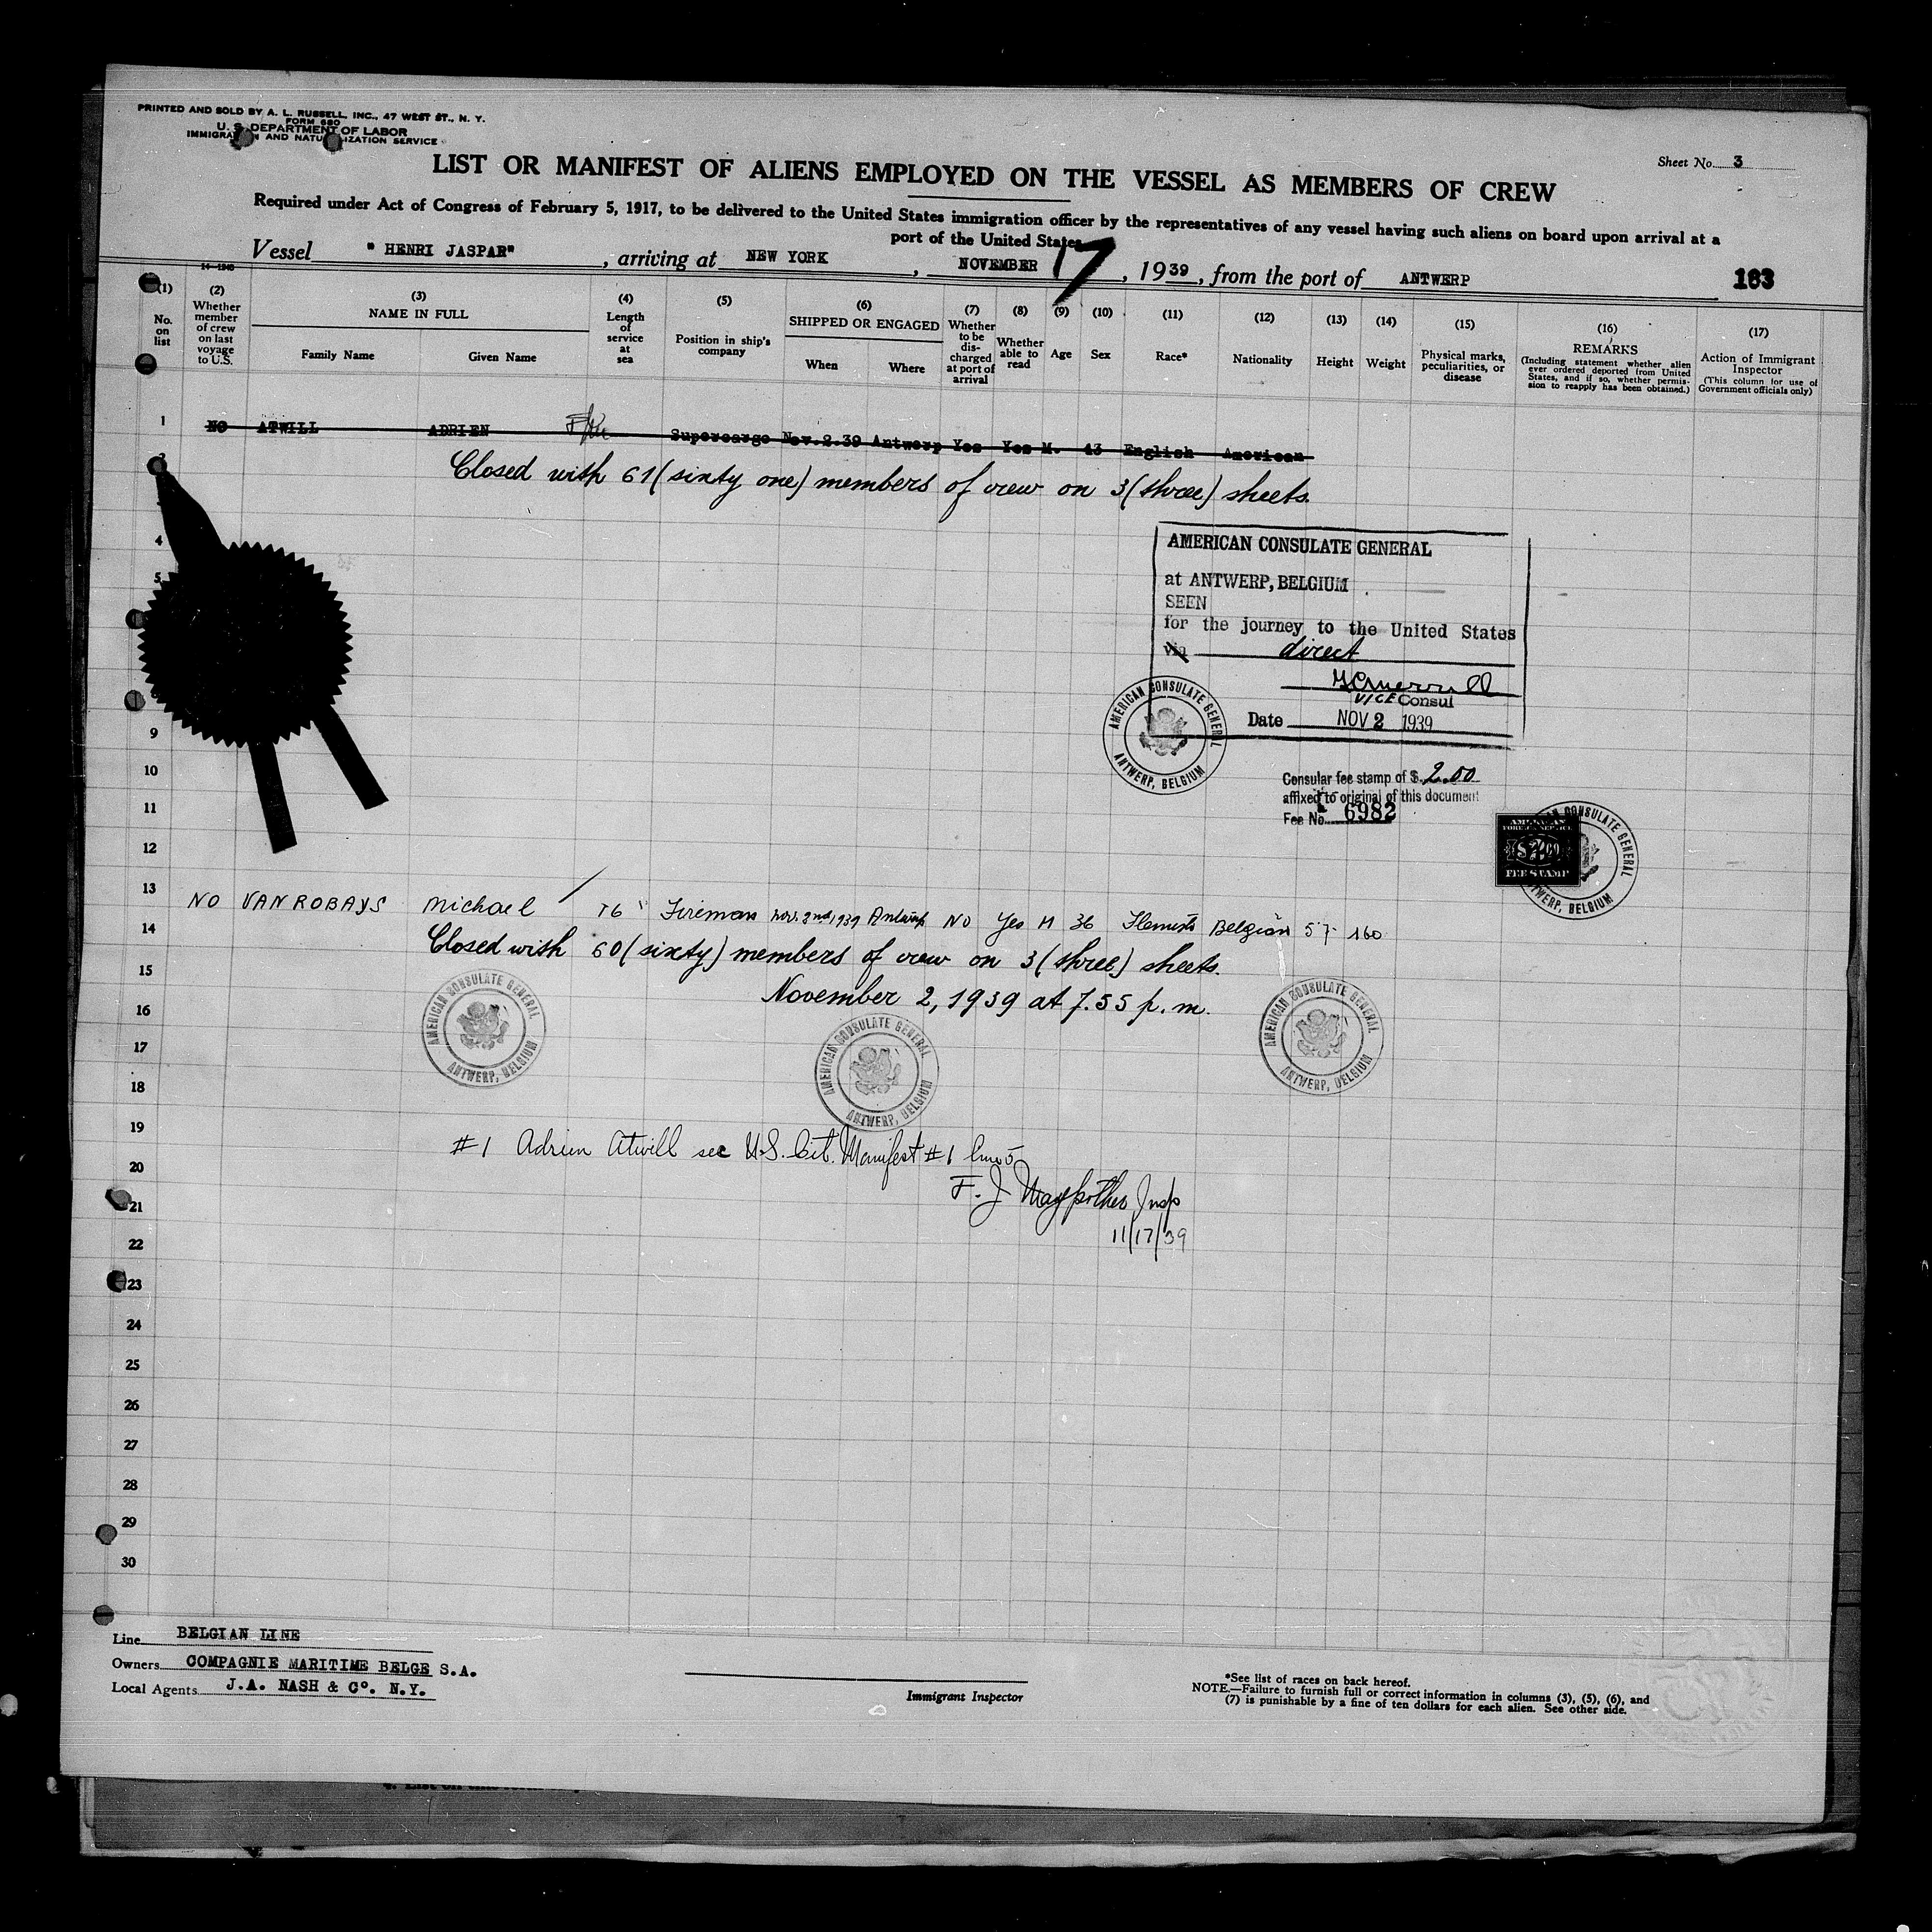 PRINTED AND SOLD BY A. L. RUSSELL, INC., 47 WEST ST., N. Y.
FORM 680
U. S. DEPARTMENT OF LABOR
IMMIGRATION AND NATURALIZATION SERVICE
Sheet No. 3
LIST OR MANIFEST OF ALIENS EMPLOYED ON THE VESSEL AS MEMBERS OF CREW
Required under Act of Congress of February 5, 1917, to be delivered to the United States immigration officer by the representatives of any vessel having such aliens on board upon arrival at a
port of the United States
Vessel "HENRI JASPAR", arriving at NEW YORK, NOVEMBER 17, 1939, from the port of ANTWERP
183
14-1240
(1) No. on list
(2) Whether member of crew on last voyage to U.S.
(3) NAME IN FULL
Family Name Given Name
(4) Length of service at sea
(5) Position in ship's company
(6) SHIPPED OR ENGAGED
When Where
(7) Whether to be discharged at port of arrival
(8) Whether able to read
(9) Age
(10) Sex
(11) Race*
(12) Nationality
(13) Height
(14) Weight
(15) Physical marks, peculiarities, or disease
(16) REMARKS
(Including statement whether alien ever ordered deported from United States, and if so, whether permission to reapply has been obtained.)
(17) Action of Immigrant Inspector
(This column for use of Government officials only)
1 NO ATWILL ADRIEN Supercargo Nov.2.39 Antwerp Yes Yes M. 43 English American
Closed with 61 (sixty one) members of crew on 3 (three) sheets.
AMERICAN CONSULATE GENERAL
at ANTWERP, BELGIUM
SEEN
for the journey to the United States
via direct
VICE Consul
Date NOV 2 1939
AMERICAN CONSULATE GENERAL
ANTWERP, BELGIUM
Consular fee stamp of $ 2.00
affixed to original of this document
Fee No. 6982
AMERICAN
FOREIGN SERVICE
FEE STAMP
AMERICAN CONSULATE GENERAL
ANTWERP, BELGIUM
4
5
9
10
11
12
13 NO VANROBAYS Michael T6 " Fireman Nov. 2nd 1939 Antwerp NO Yes M 36 Flemish Belgian 5'7 160
14 Closed with 60 (sixty) members of crew on 3 (three) sheets.
15 November 2, 1939 at 7.55 p.m.
AMERICAN CONSULATE GENERAL
ANTWERP, BELGIUM
AMERICAN CONSULATE GENERAL
ANTWERP, BELGIUM
AMERICAN CONSULATE GENERAL
ANTWERP, BELGIUM
16
17
18
19
#1 Adrien Atwill see U.S. Cit. Manifest #1 line 5
20
F. J. Insp
21
11/17/39
22
23
24
25
26
27
28
29
30
Line BELGIAN LINE
Owners COMPAGNIE MARITIME BELGE S.A.
Local Agents J.A. NASH & Co. N.Y.
Immigrant Inspector
*See list of races on back hereof.
NOTE.—Failure to furnish full or correct information in columns (3), (5), (6), and
(7) is punishable by a fine of ten dollars for each alien. See other side.